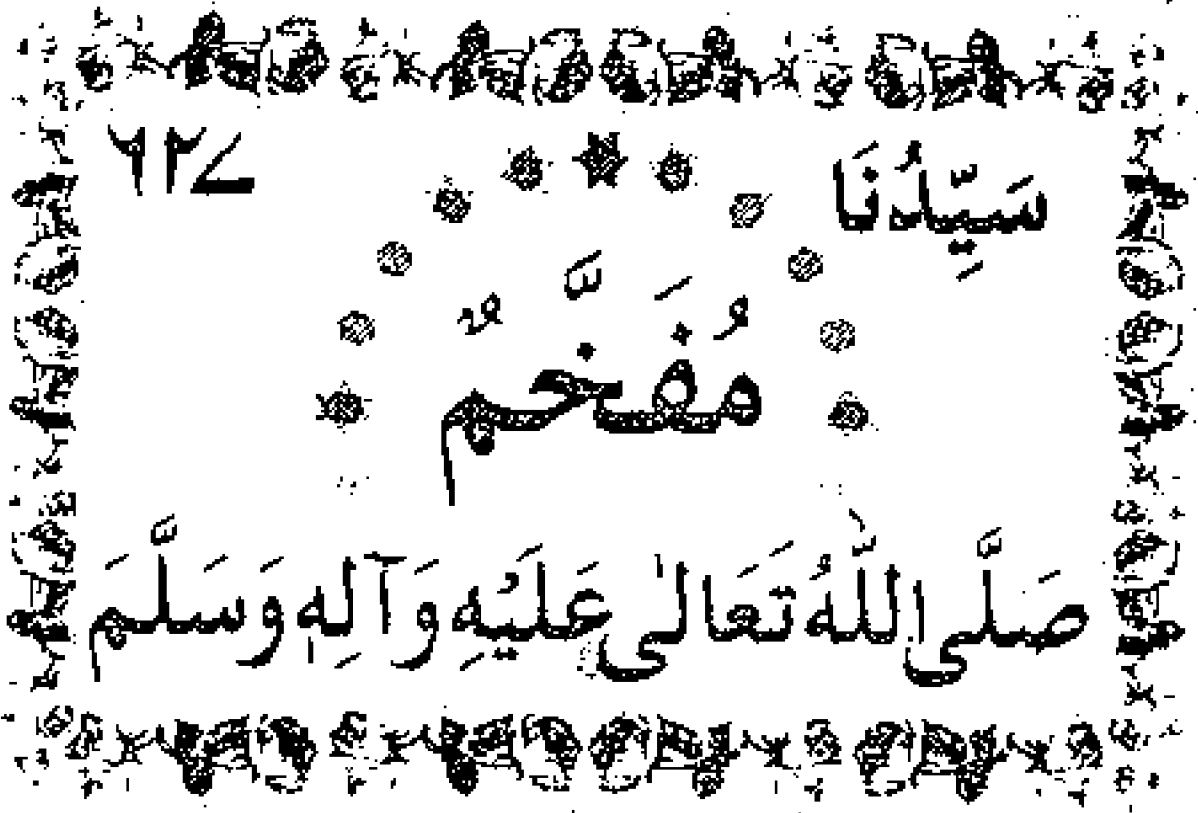 سَيِّدُنَا ۶۲۷
مُفَخَّمٌ
صَلَّى اللّٰهُ تَعَالىٰ عَلَيْهِ وَآلِهٖ وَسَلَّمَ